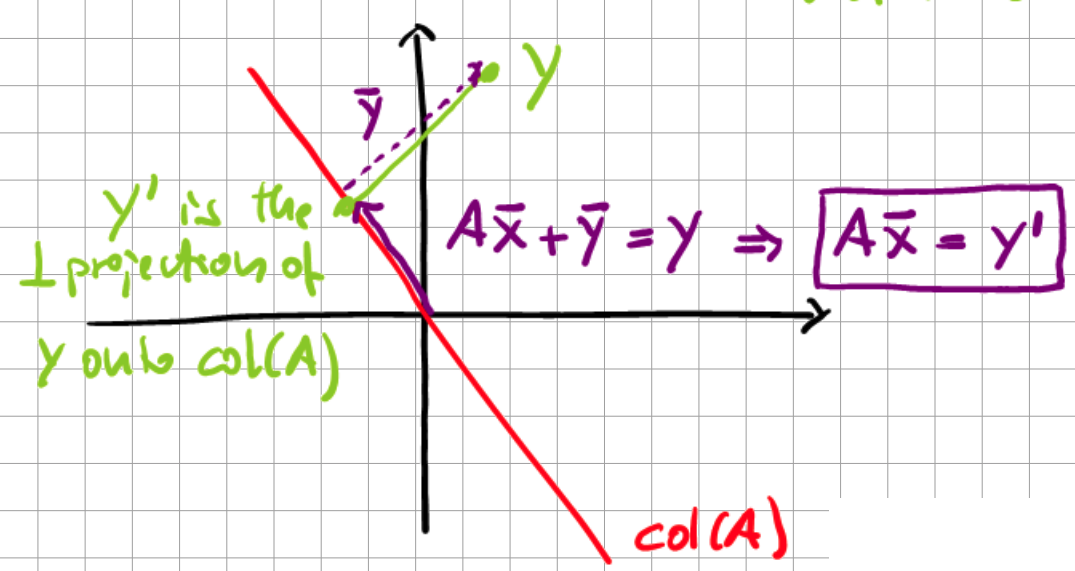 y
ȳ
y' is the
⊥ projection of
y onto col(A)
Ax̄ + ȳ = y ⇒ Ax̄ = y'
col(A)